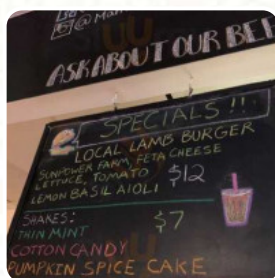 @Mar
ASK ABOUT OUR BE
SPECIALS!!
LOCAL LAMB BURGER
SUNPOWER FARM, FETA CHEESE
LETTUCE, TOMATO $12
LEMON BASIL AIOLI
SHAKES: $7
THIN MINT
COTTON CANDY
PUMPKIN SPICE CAKE